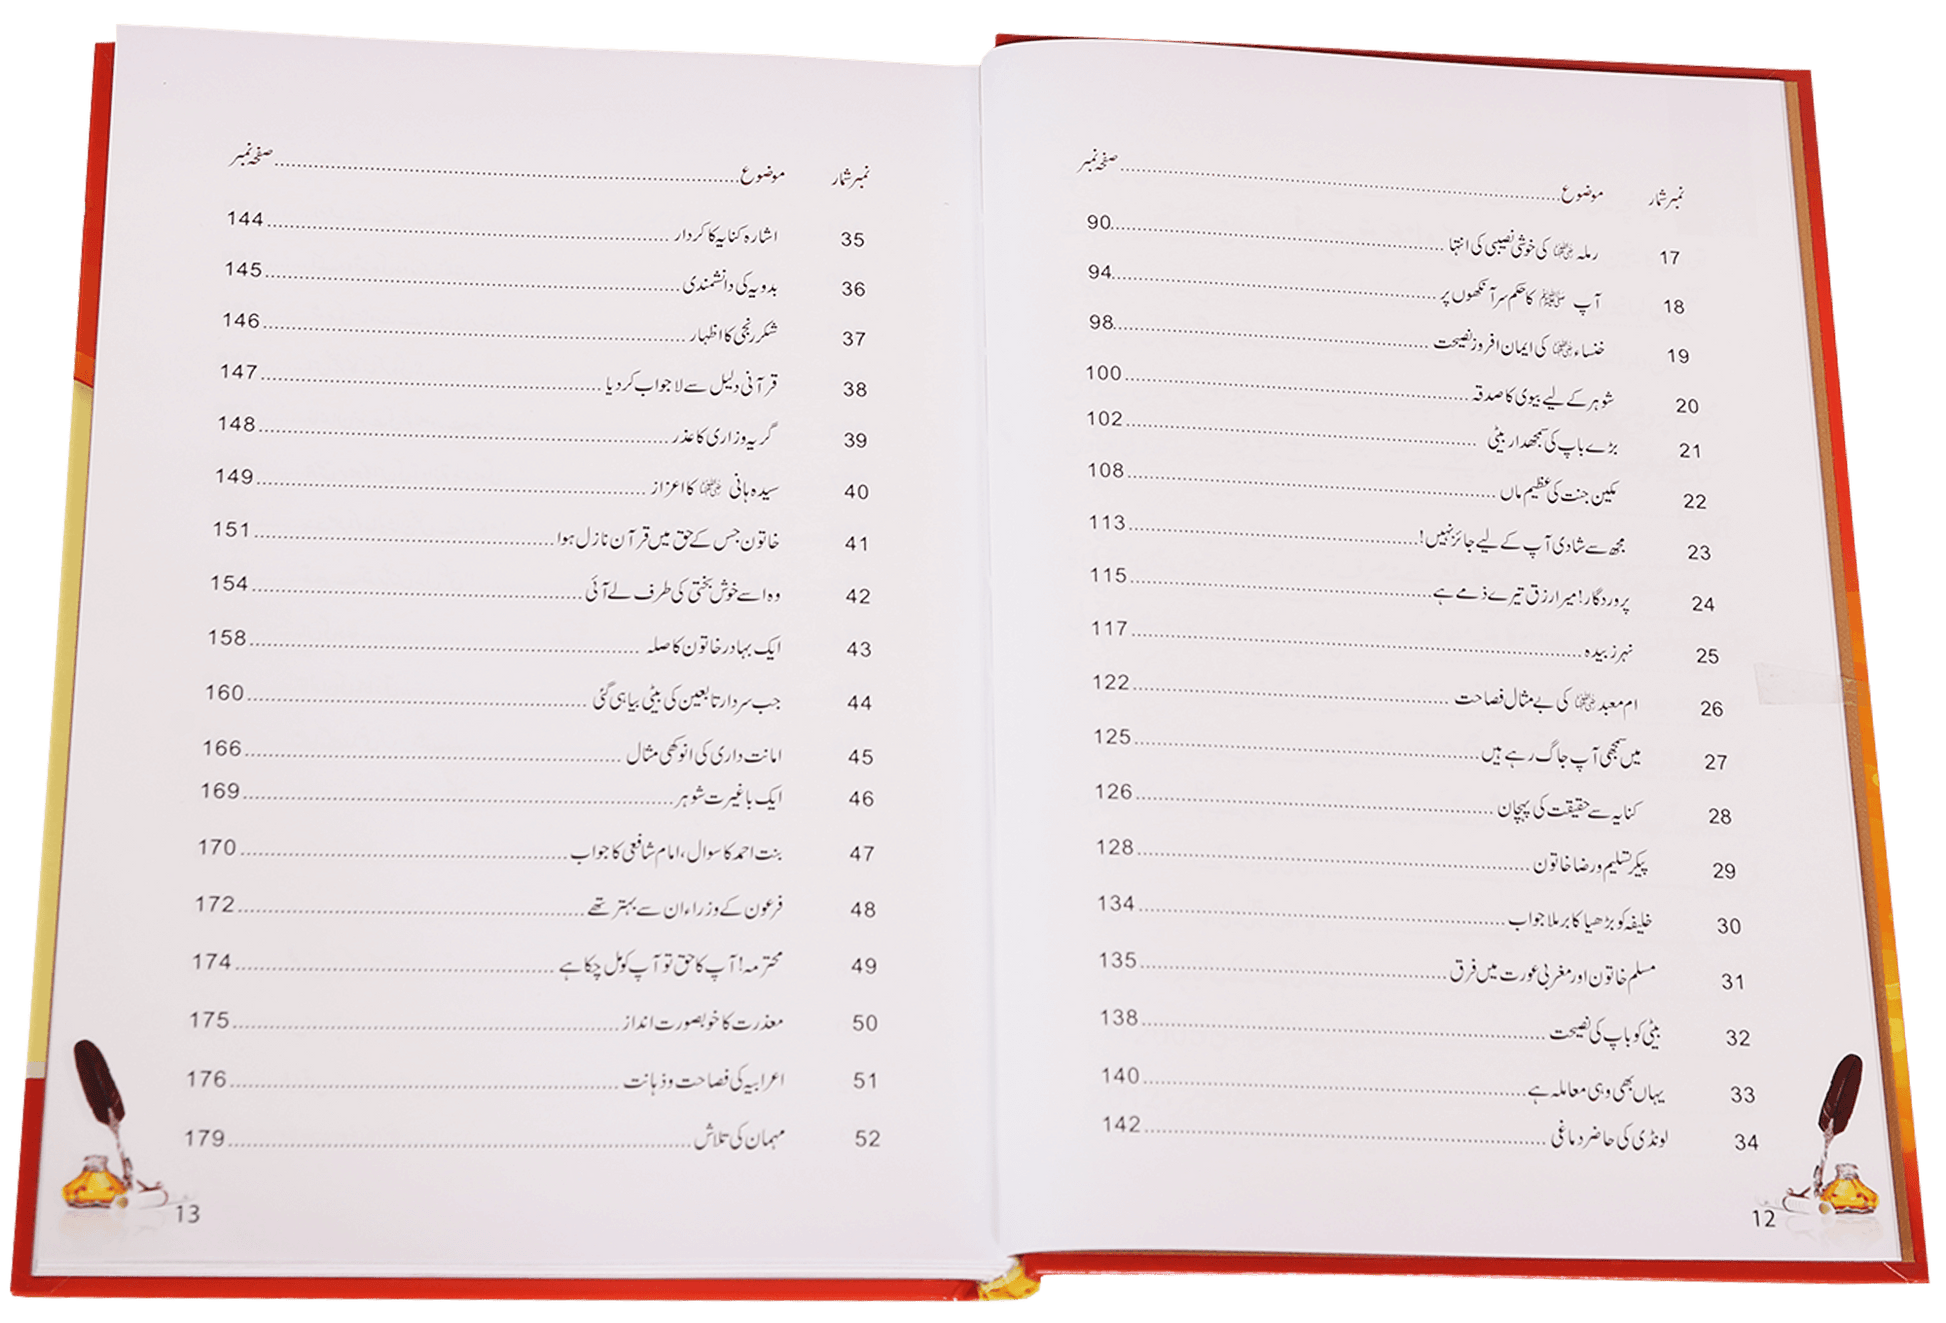 نمبر شمار موضوع........صفحہ نمبر
17 رملہ رضی اللہ عنہا کی خوشی نصیبی کی انتہا........90
18 آپ ﷺ کا حکم سر آنکھوں پر........94
19 خنساء رضی اللہ عنہا کی ایمان افروز نصیحت........98
20 شوہر کے لیے بیوی کا صدقہ........100
21 بڑے باپ کی سمجھدار بیٹی........102
22 مکین جنت کی عظیم ماں........108
23 مجھ سے شادی آپ کے لیے جائز نہیں!........113
24 پروردگار! میرا رزق تیرے ذمے ہے........115
25 نہر زبیدہ........117
26 ام معبد رضی اللہ عنہا کی بے مثال فصاحت........122
27 میں سمجھی آپ جاگ رہے ہیں........125
28 کنایہ سے حقیقت کی پہچان........126
29 پیکر تسلیم و رضا خاتون........128
30 خلیفہ کو بڑھیا کا برملا جواب........134
31 مسلم خاتون اور مغربی عورت میں فرق........135
32 بیٹی کو باپ کی نصیحت........138
33 یہاں بھی وہی معاملہ ہے........140
34 لونڈی کی حاضر دماغی........142
12
نمبر شمار موضوع........صفحہ نمبر
35 اشارہ کنایہ کا کردار........144
36 بدویہ کی دانشمندی........145
37 شکر رنجی کا اظہار........146
38 قرآنی دلیل سے لاجواب کر دیا........147
39 گریہ و زاری کا عذر........148
40 سیدہ ہانی رضی اللہ عنہا کا اعزاز........149
41 خاتون جس کے حق میں قرآن نازل ہوا........151
42 وہ اسے خوش بختی کی طرف لے آئی........154
43 ایک بہادر خاتون کا صلہ........158
44 جب سردار تابعین کی بیٹی بیاہی گئی........160
45 امانت داری کی انوکھی مثال........166
46 ایک باغیرت شوہر........169
47 بنت احمد کا سوال، امام شافعی کا جواب........170
48 فرعون کے وزراء ان سے بہتر تھے........172
49 محترمہ! آپ کا حق تو آپ کو مل چکا ہے........174
50 معذرت کا خوبصورت انداز........175
51 اعرابیہ کی فصاحت و ذہانت........176
52 مہمان کی تلاش........179
13